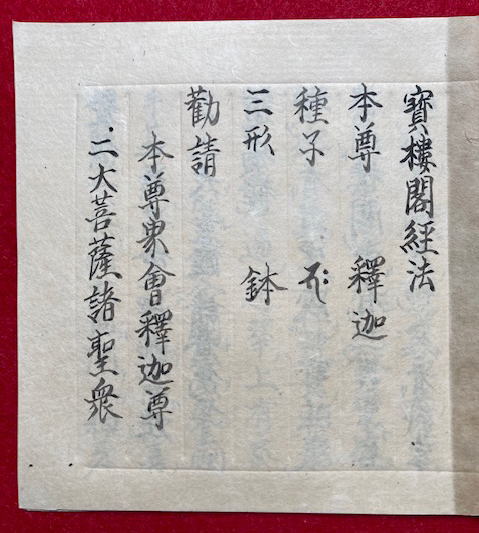 寶樓閣經法
本尊 釋迦
種子 𑖥𑖾
三形 鉢
勸請
本尊界會釋迦尊
二大菩薩諸聖衆